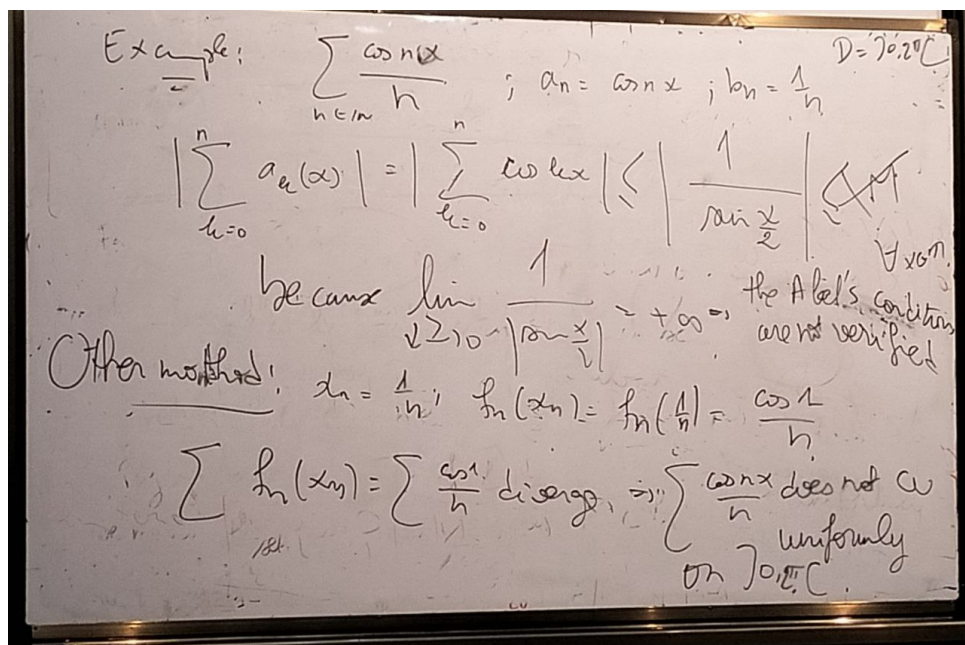 Example: ∑_{n∈ℕ} cos nx / n ; a_n = cos nx ; b_n = 1/n D = ]0,2π[
|∑_{k=0}^{n} a_k(x)| = |∑_{k=0}^{n} cos kx| ≤ |1 / sin x/2| ≤ M ∀x∈
because lim_{x→0} 1 / |sin x/2| = +∞ ⇒ the Abel's conditions are not verified
Other method: x_n = 1/n ; f_n(x_n) = f_n(1/n) = cos 1 / n
∑ f_n(x_n) = ∑ cos 1 / n diverge, ⇒ ∑ cos nx / n does not CU
uniformly
on ]0,2π[.